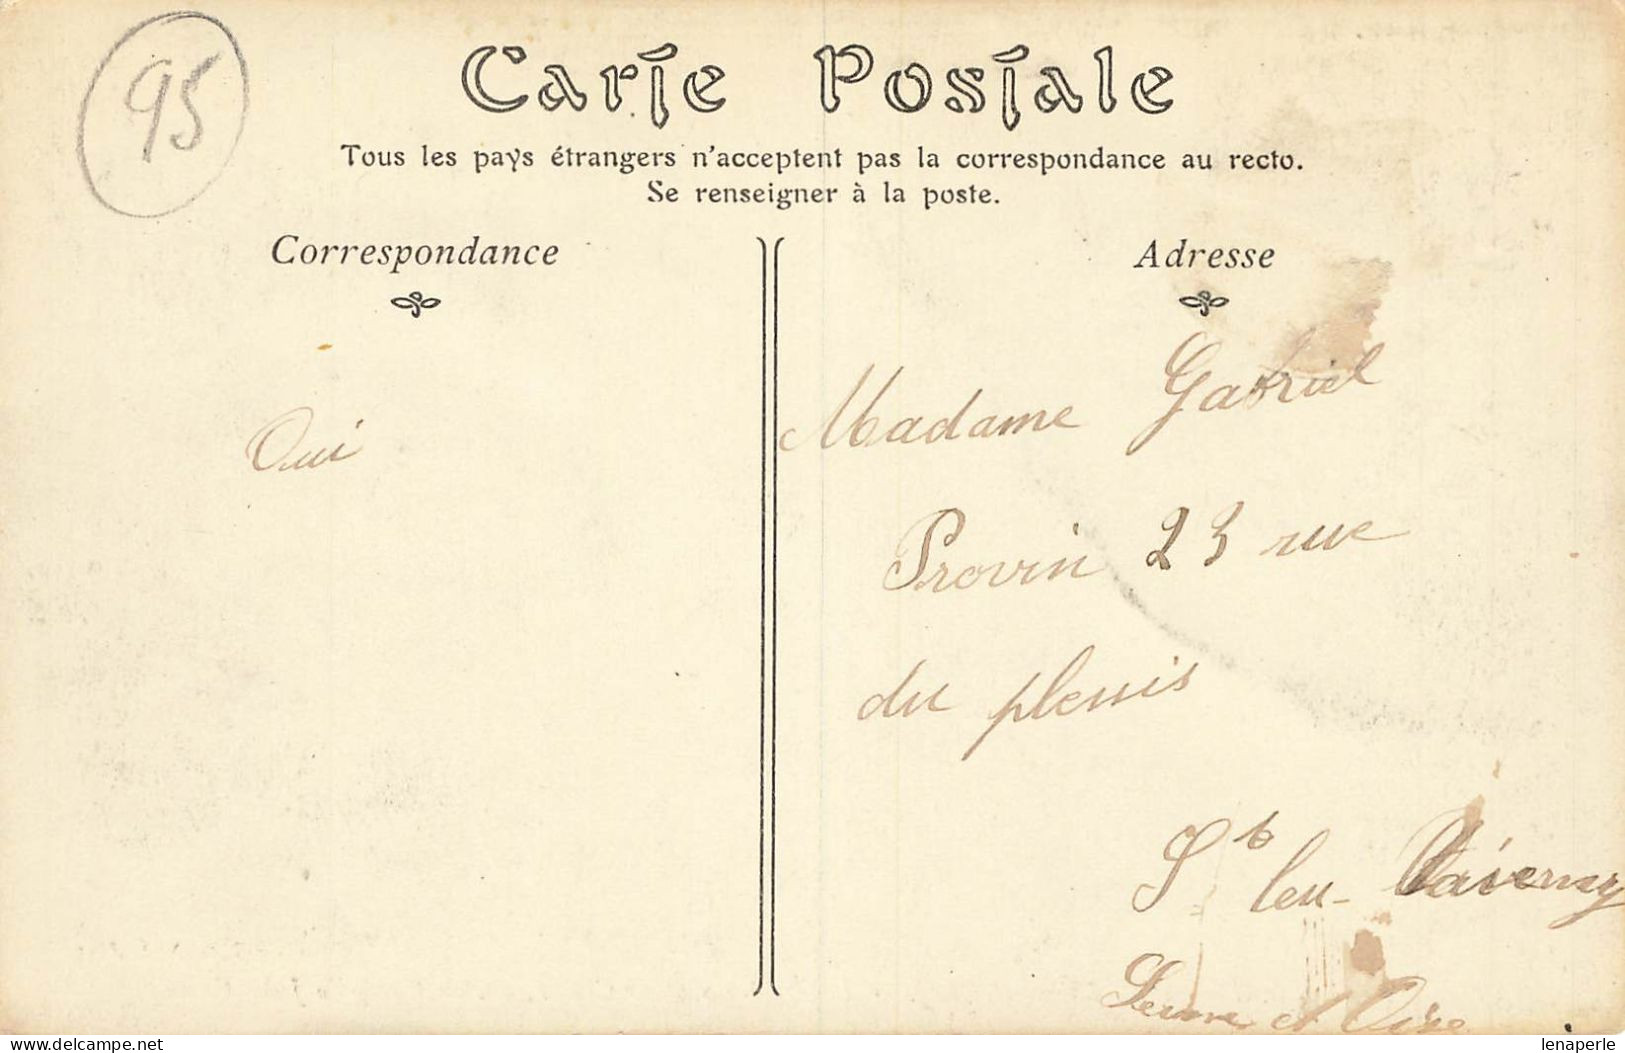 95
Carte Postale
Tous les pays étrangers n'acceptent pas la correspondance au recto.
Se renseigner à la poste.
Correspondance
Adresse
Oui
Madame Gabriel
Provin 23 rue
du plessis
St leu-Taverny
Seine et Oise
lenaperle